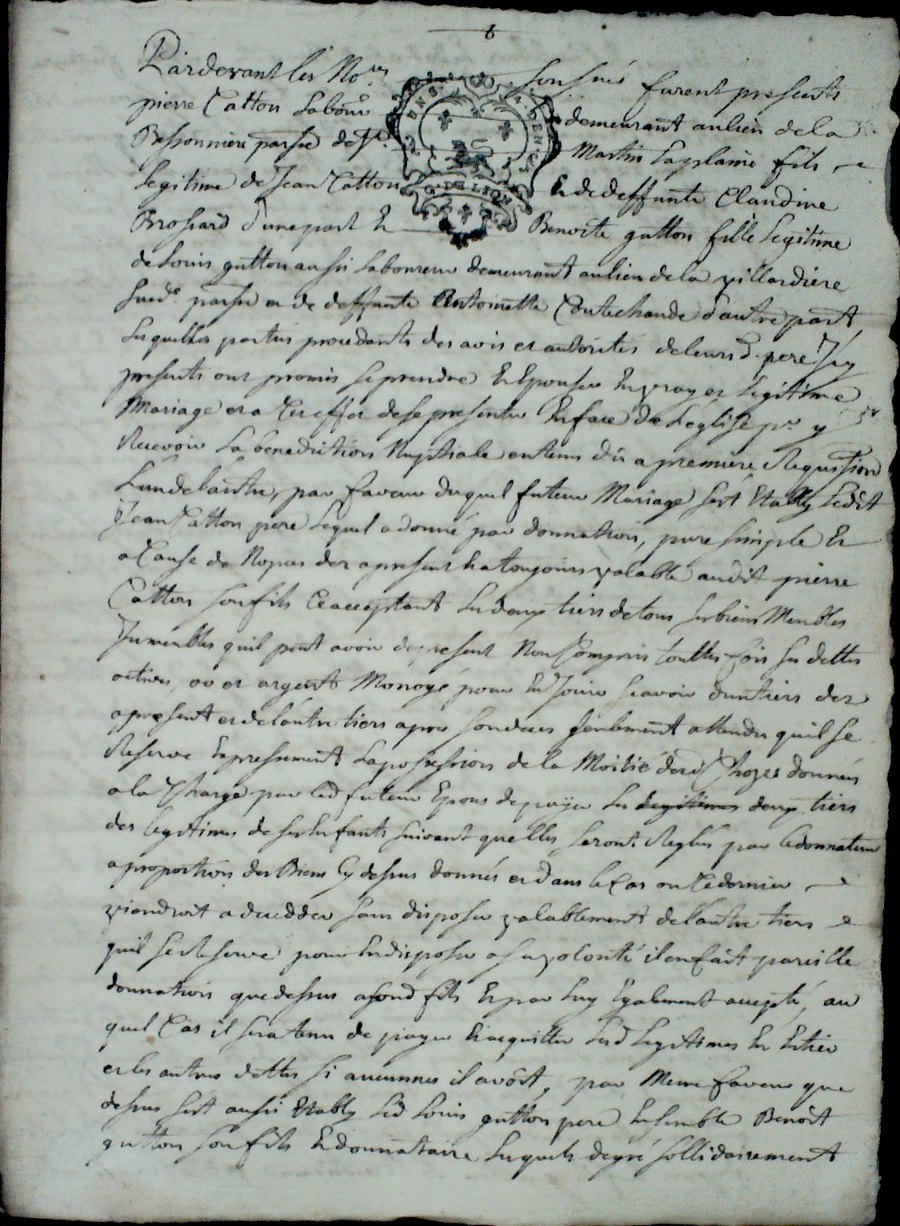 6
Pardevant les No.res soussignés furent presents
pierre Catton Labour demeurant au lieu de la
Bessonniere parsse de St. Martin Laplaine fils
Legitime de Jean Catton & de deffunte Claudine
Brossard d'une part Et Benoite gutton fille Legitime
de Louis gutton aussi Laboureur demeurant au lieu de la villardiere
susd. parsse et de deffunte Antoinette Coutechande d'autre part
Lesquelles parties procedants des avis et autorités de leurs d. pere Icy
presents ont promis se prendre Et Epouser En vray et Legitime
Mariage et a Cet effet de se presenter En face de L'eglise pr y
Recevoir La benediction Nuptiale entems du a premiere Requisition
L'un de L'autre, par faveur duquel futeur Mariage s'est Etably Ledit
Jean Catton pere Lequel a donné par donnation, pure simple Et
a Cause de Nopces des apresent Ea toujours valable audit pierre
Catton son fils Ce acceptant Les deux tiers de tous ses biens Meubles
Immeubles quil peut avoir de present Non Compris touttes fois ses dettes
actives, or et argent Monoyé, pour En Jouir scavoir d'un tiers des
apresent et de l'autre tiers apres son deces seulement attendu quil se
Reserve Expressement La possession de la Moitié desd. Choses donnés
a la Charge par led. futeur Epoux de payer Les legitimes deux tiers
des legitimes de ses Enfants suivant quelles seront Reglés par le donnateur
a proportion des Biens Cy dessus donnés et dans le Cas ou Ce dernier
viendroit a decedder sans disposer valablement de L'autre tiers
quil se Reserve pour En disposer a sa volonté il en fait pareille
donnation que dessus a sond. fils Et par Luy Egalement accepté, au
quel Cas il sera tenu de payer Et acquitter Lesd. Legitimes En Entier
et les autres dettes si aucunnes il avoit, par Meme faveur que
dessus s'est aussi Etably Led. Louis gutton pere Ensemble Benoit
gutton son fils Et donnataire Lesquels de gré sollidairement